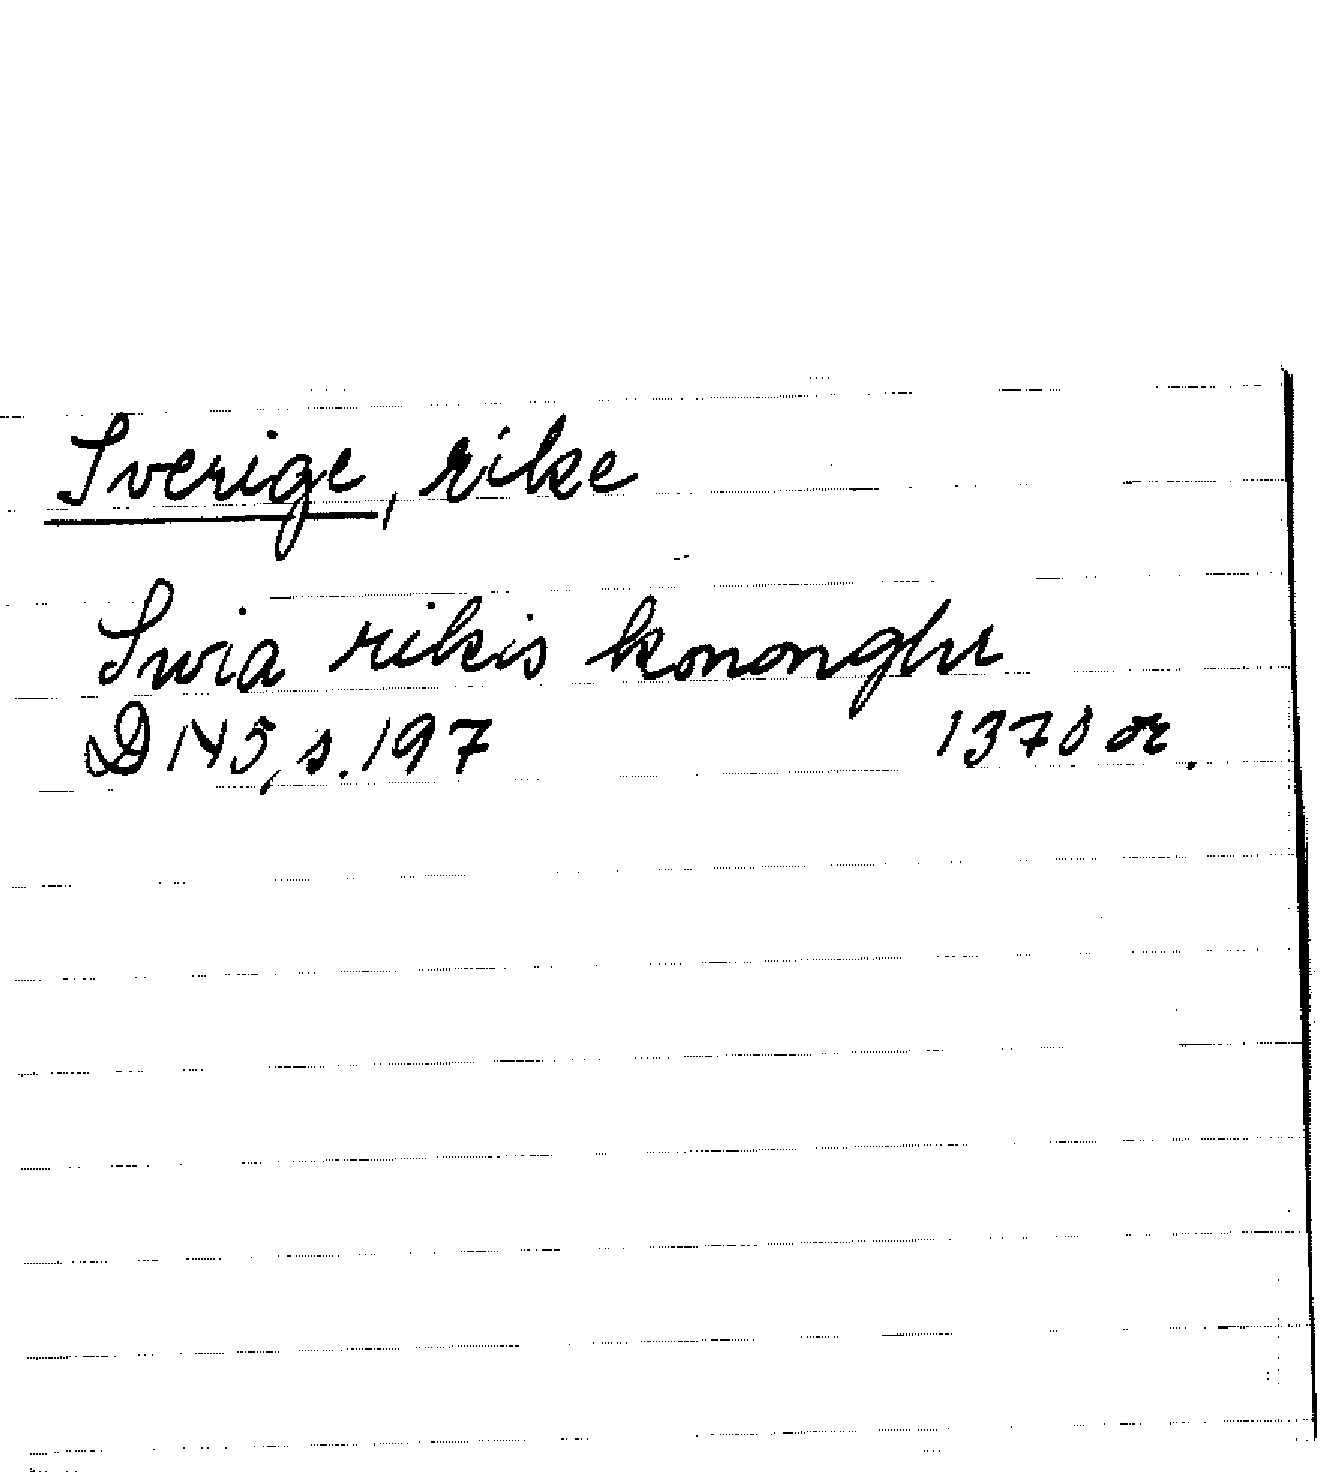 Sverige, rike
Swia rikis kononghr
D 145, s. 197 1370 or.